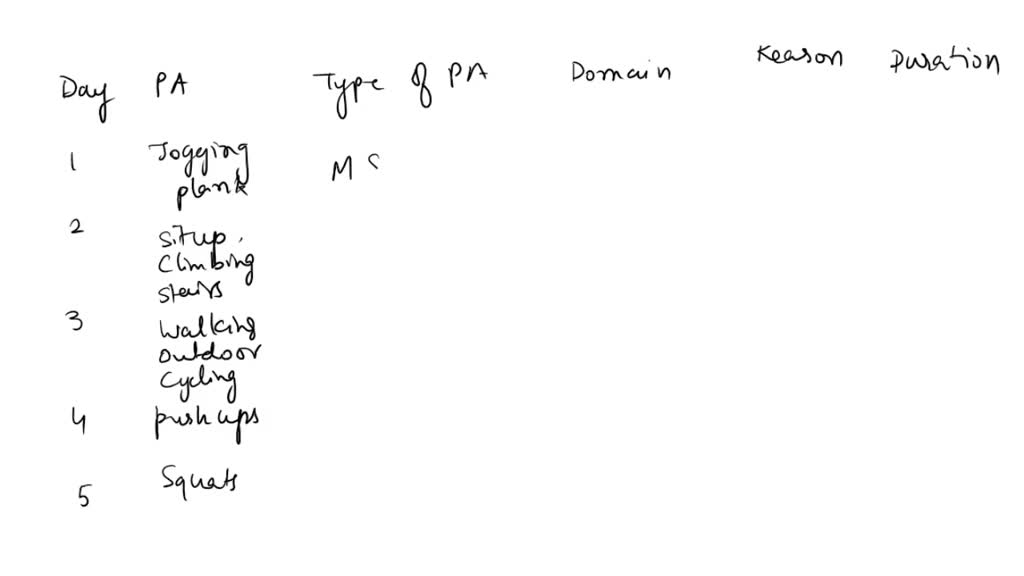 Day PA Type of PA Domain Reason Duration
1 Jogging M S
plank
2 situp,
Climbing
stairs
3 walking
outdoor
Cycling
4 push ups
5 Squats